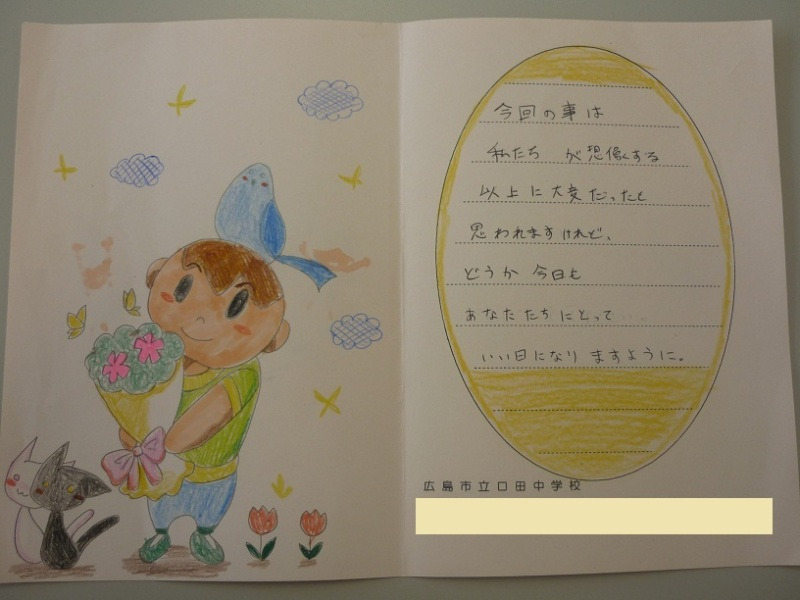 今回の事は
私たちが想像する
以上に大変だったと
思われますけれど、
どうか今日も
あなたたちにとって
いい日になりますように。
広島市立口田中学校